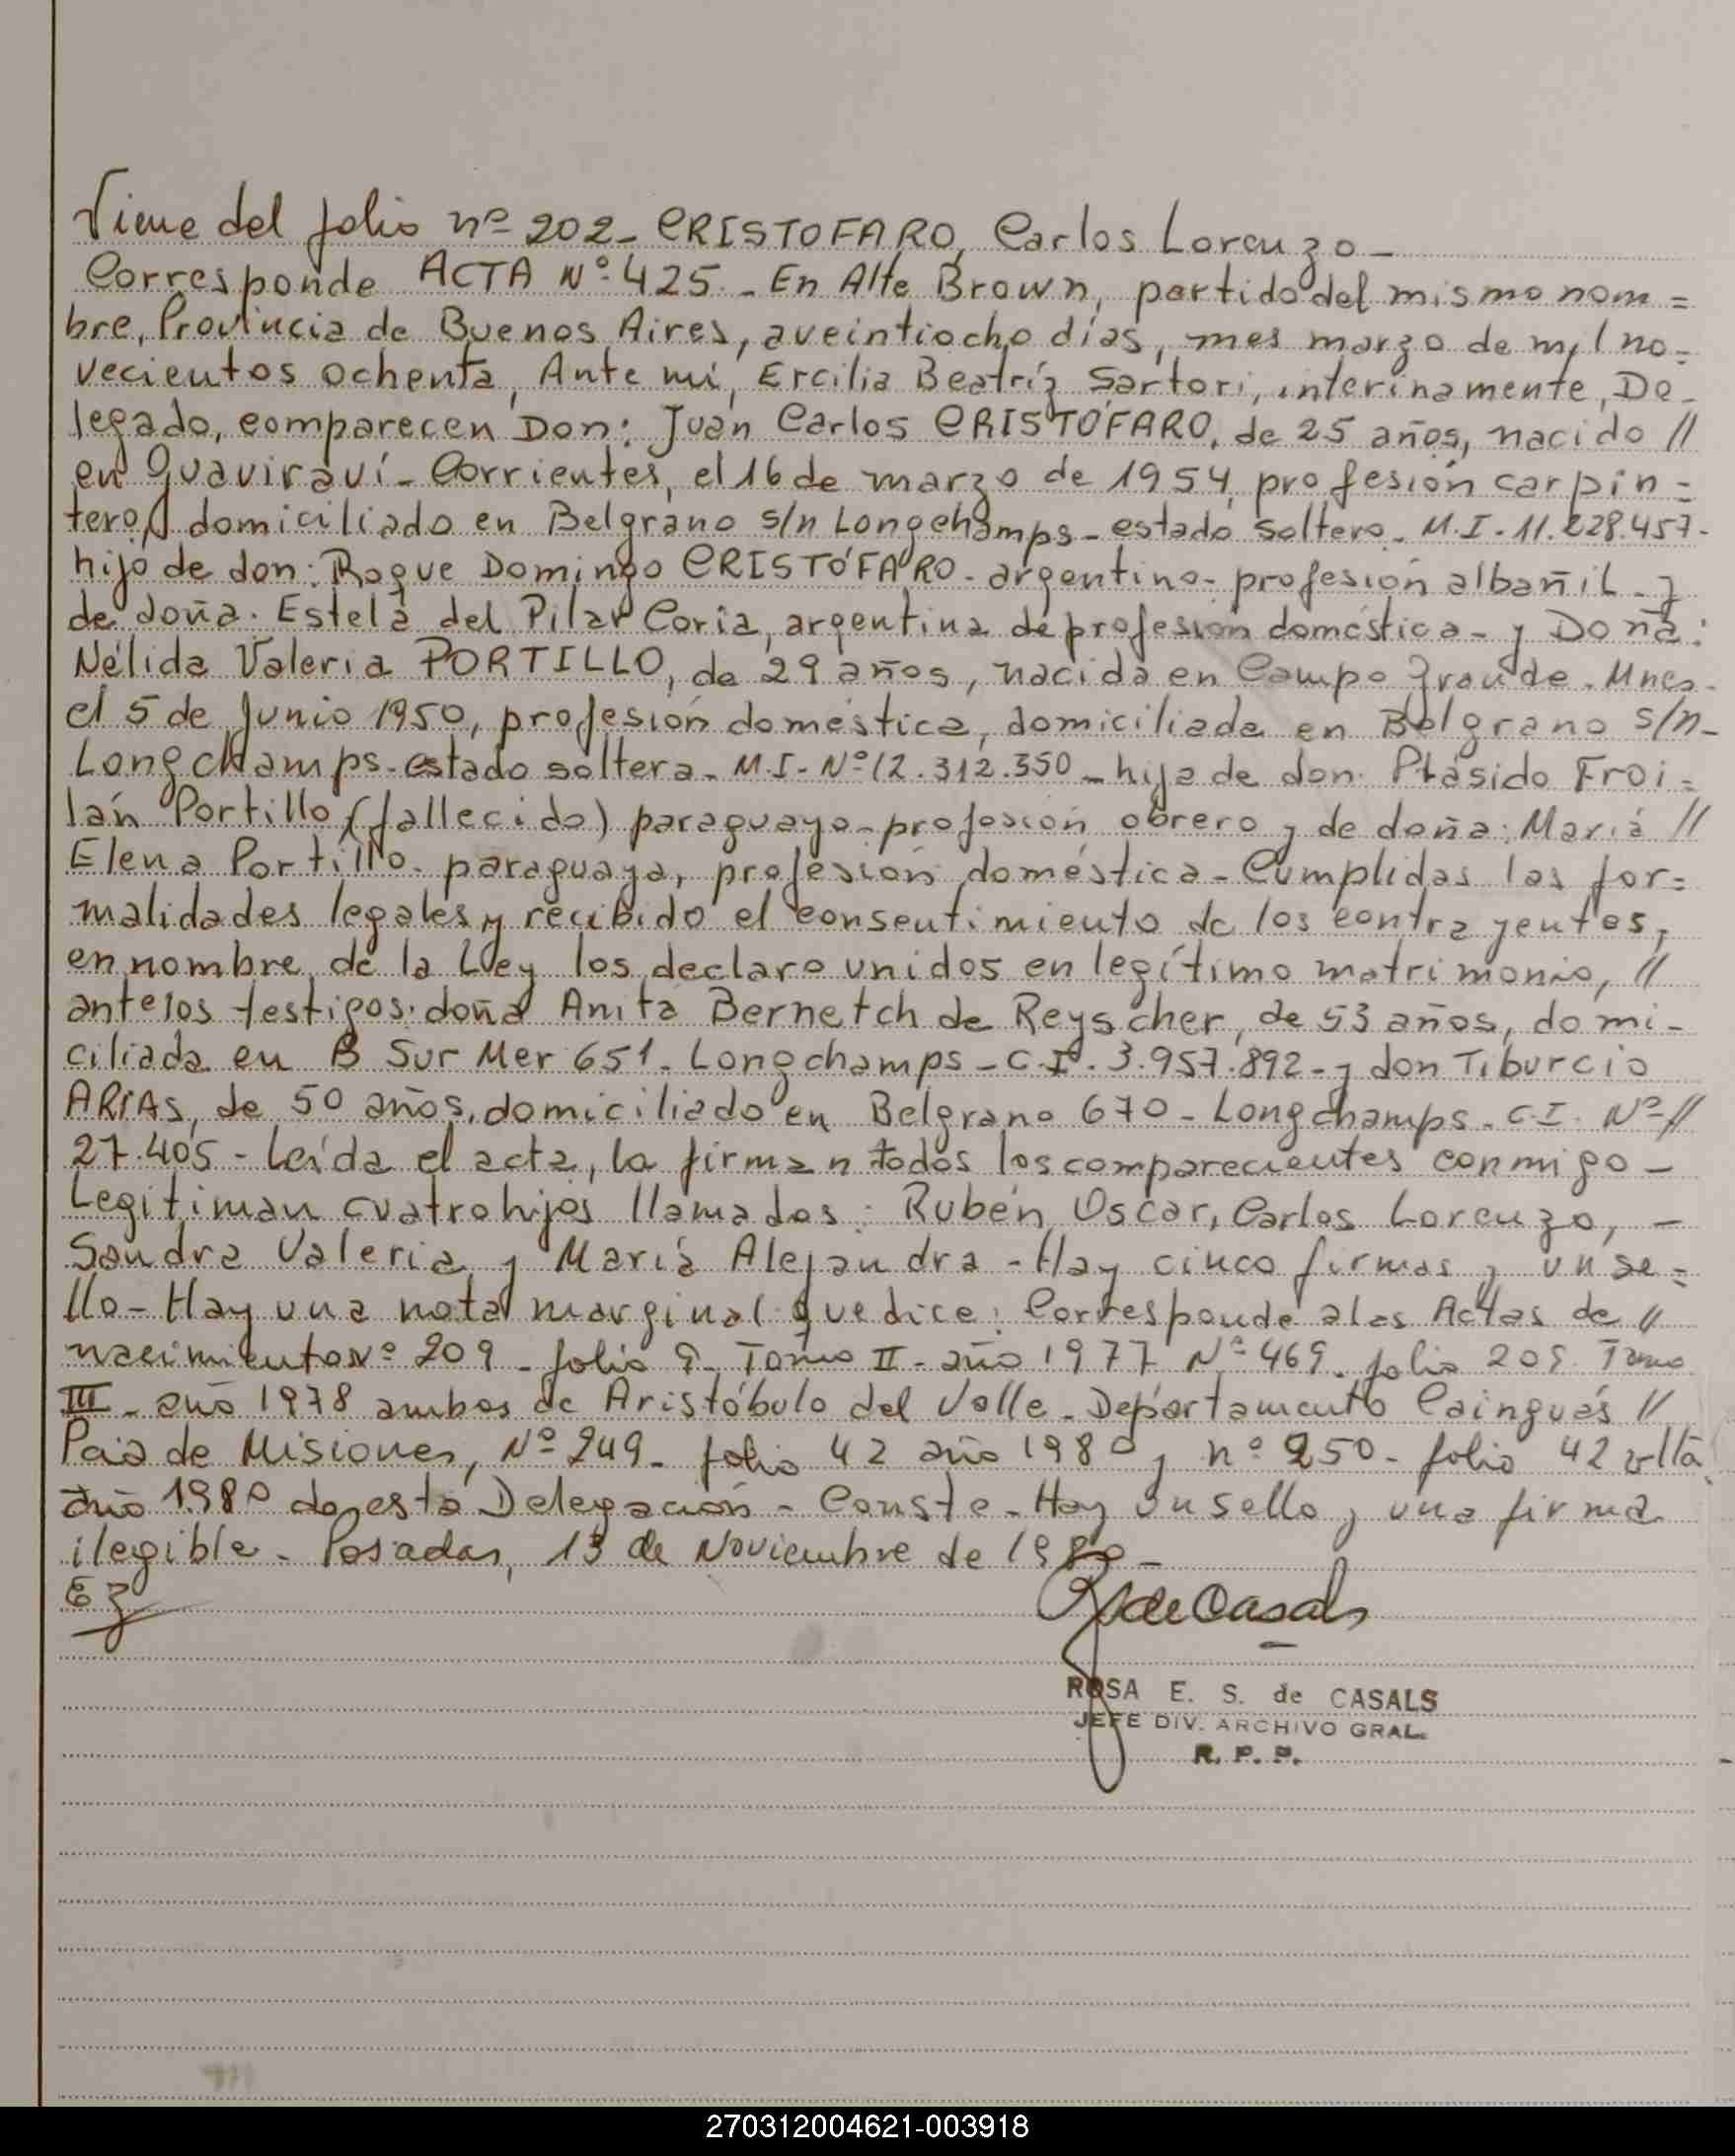 Viene del folio nº 202 - CRISTOFARO, Carlos Lorenzo -
Corresponde ACTA Nº 425 - En Alte Brown, partido del mismo nom =
bre, Provincia de Buenos Aires, a veintiocho días, mes marzo de mil no =
vecientos ochenta, Ante mí, Ercilia Beatríz Sartori, interinamente, De -
legado, comparecen Don: Juan Carlos CRISTÓFARO, de 25 años, nacido //
en Guaviraví - Corrientes, el 16 de marzo de 1954, profesión carpin =
tero, domiciliado en Belgrano s/n Longchamps - estado soltero - M.I - 11.228.457 -
hijo de don: Roque Domingo CRISTÓFARO - argentino - profesión albañil - y
de doña. Estela del Pilar Coria, argentina de profesión doméstica - y Doña:
Nélida Valeria PORTILLO, de 29 años, nacida en Campo Grande - Mnes -
el 5 de Junio 1950, profesión doméstica, domiciliada en Belgrano s/n -
Longchamps - estado soltera - M.I - Nº 12.312.350 - hija de don: Plásido Froi =
lán Portillo (fallecido) paraguayo - profesión obrero y de doña: María //
Elena Portillo - paraguaya, profesión doméstica - Cumplidas las for =
malidades legales y recibido el consentimiento de los contrayentes,
en nombre de la Ley los declaro unidos en legítimo matrimonio, //
ante los testigos: doña Anita Bernetch de Reyscher, de 53 años, domi -
ciliada en B Sur Mer 651 - Longchamps - C.I. 3.957.892 - y don Tiburcio
ARIAS, de 50 años, domiciliado en Belgrano 670 - Longchamps - C.I. Nº //
27.405 - Leída el acta, la firman todos los comparecientes conmigo -
Legitiman cuatro hijos llamados: Rubén Oscar, Carlos Lorenzo, -
Sandra Valeria y María Alejandra - Hay cinco firmas y un se =
llo - Hay una nota marginal que dice: Corresponde a las Actas de //
nacimientos Nº 209 - folio 9 - Tomo II - año 1977 Nº 469 - folio 209 - Tomo
III - año 1978 ambos de Aristóbulo del Valle - Departamento Cainguás //
Pcia de Misiones, Nº 249 - folio 42 año 1980 y nº 250 - folio 42 vlta
año 1980 de esta Delegación - Conste - Hay un sello y una firma
ilegible - Posadas, 13 de Noviembre de 1980 -
EZ
R de Casals
ROSA E. S. de CASALS
JEFE DIV. ARCHIVO GRAL.
R. P. P.
270312004621-003918